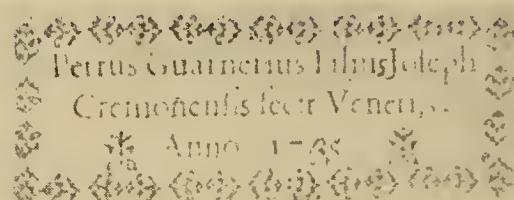 Petrus Guarnerius Filius Joseph
Cremonensis fecit Venetijs.
Anno 17